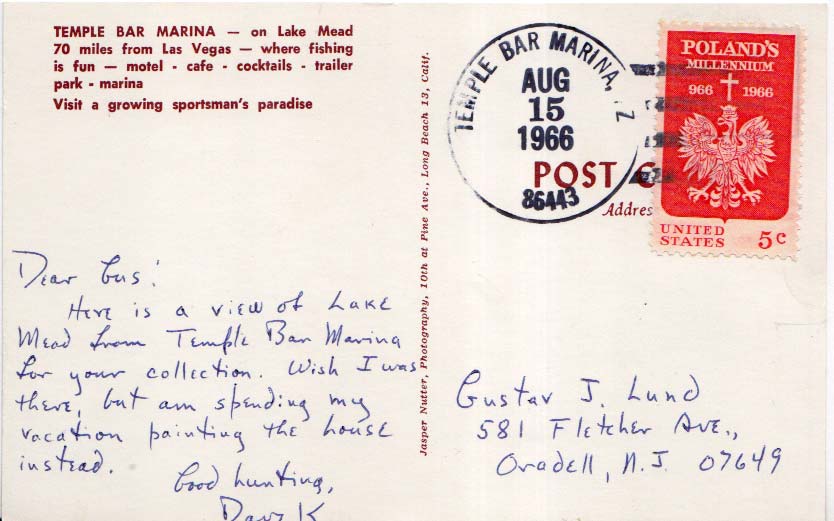 TEMPLE BAR MARINA — on Lake Mead
70 miles from Las Vegas — where fishing
is fun — motel - cafe - cocktails - trailer
park - marina
Visit a growing sportsman's paradise
Jasper Nutter, Photography, 10th at Pine Ave., Long Beach 13, Calif.
TEMPLE BAR MARINA,
AUG
15
1966
86443
POST
Addres
POLAND'S
MILLENNIUM
966 1966
UNITED
STATES 5c
Dear Gus:
Here is a view of Lake
Mead from Temple Bar Marina
for your collection. Wish I was
there, but am spending my
vacation painting the house
instead.
Good hunting,
Dave K
Gustav J. Lund
581 Fletcher Ave.,
Oradell, N.J. 07649